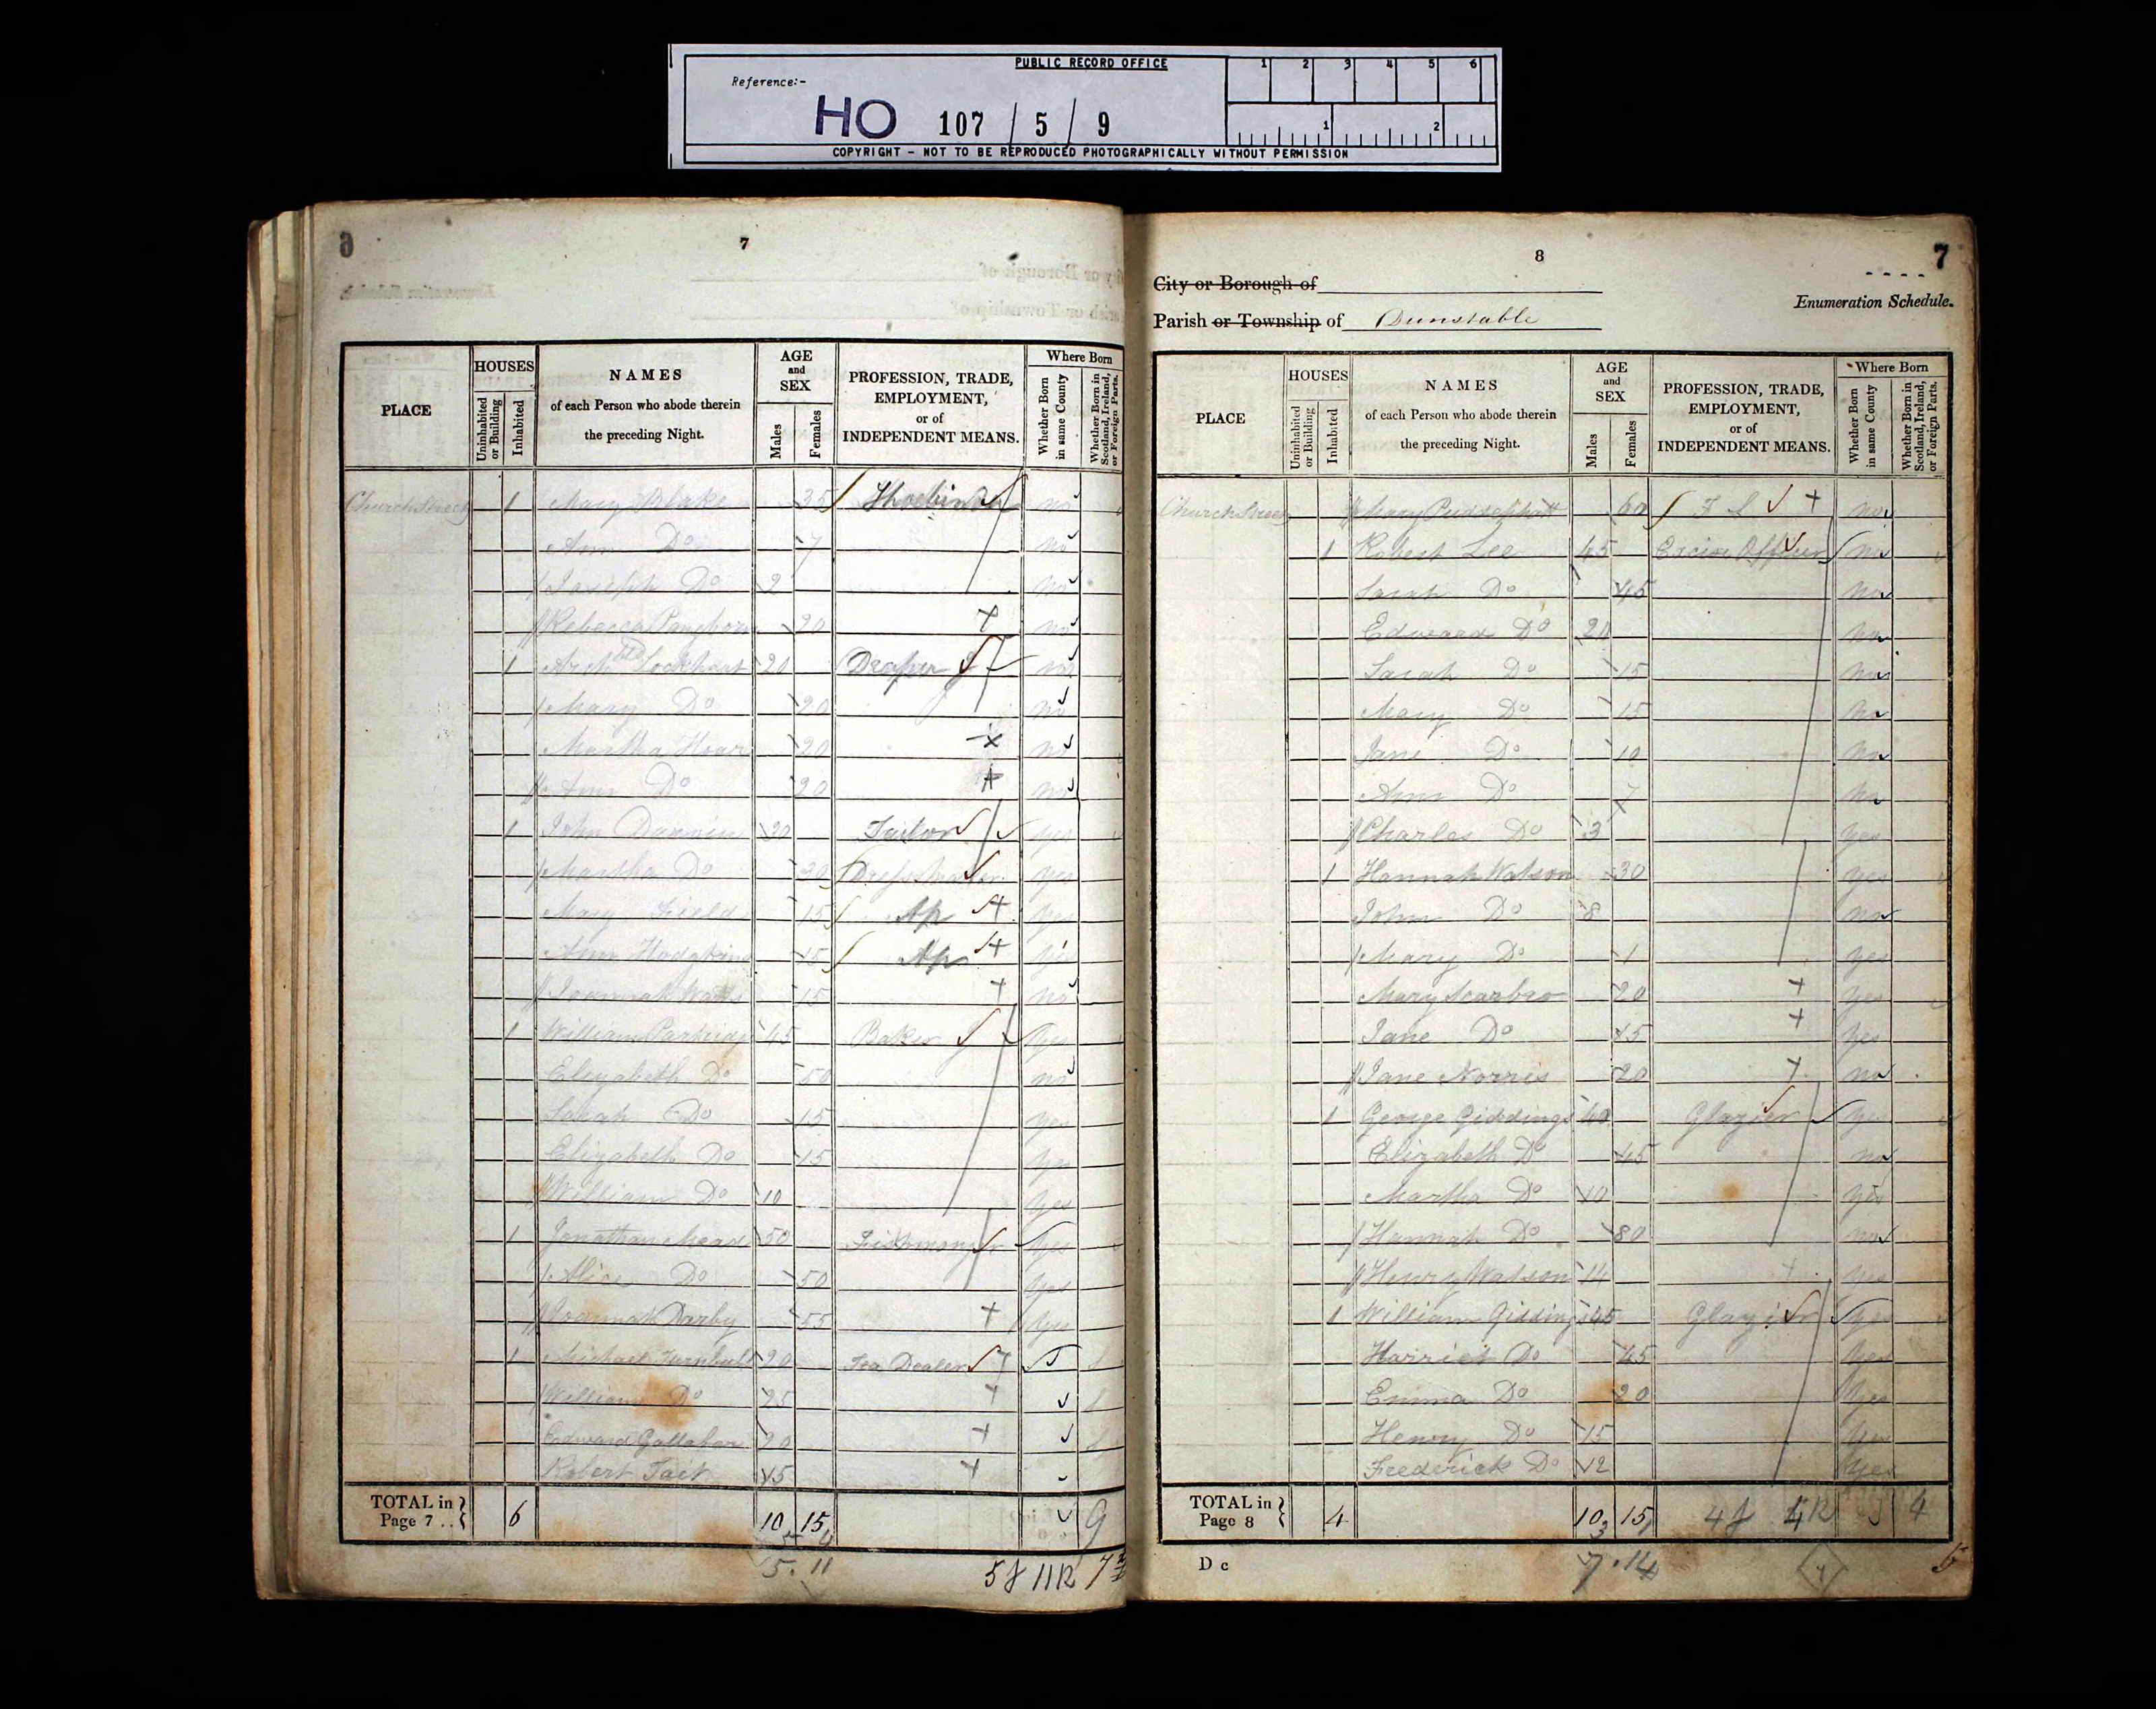 PUBLIC RECORD OFFICE
Reference:-
HO 107 / 5 / 9
1 2 3 4 5 6
1 2
COPYRIGHT - NOT TO BE REPRODUCED PHOTOGRAPHICALLY WITHOUT PERMISSION
7
PLACE
HOUSES
Uninhabited or Building
Inhabited
NAMES
of each Person who abode therein
the preceding Night.
AGE
and
SEX
Males
Females
PROFESSION, TRADE,
EMPLOYMENT,
or of
INDEPENDENT MEANS.
Where Born
Whether Born in same County
Whether Born in Scotland, Ireland, or Foreign Parts.
Church Street 1 Mary Blake 35 no
Ann Do 7 no
Joseph Do 2 no
Rebecca 20 no
1 Archd Lockhart 20 Draper no
Mary Do 20 no
Martha Hoar 20 no
Ann Do 20 no
1 John 30 Tailor yes
Martha Do 30 Dress Maker yes
Mary Field 15 Ap yes
Ann Hodgkins 15 Ap yes
15 no
1 William Partridge 45 Baker yes
Elizabeth Do 50 no
Sarah Do 15 yes
Elizabeth Do 15 yes
William Do 10 yes
1 Jonathan Mead 50 Fishmonger yes
Alice Do 50 yes
Darby 55 yes
1 Michael Turnbull 20 Tea Dealer
William Do 25
Edward Gallahar 20
Robert Tait 15
TOTAL in Page 7 .. 6 10 15 9
5 4
5. 11 58 11R 7
8
7
City or Borough of
Enumeration Schedule.
Parish or Township of Dunstable
PLACE
HOUSES
Uninhabited or Building
Inhabited
NAMES
of each Person who abode therein
the preceding Night.
AGE
and
SEX
Males
Females
PROFESSION, TRADE,
EMPLOYMENT,
or of
INDEPENDENT MEANS.
Where Born
Whether Born in same County
Whether Born in Scotland, Ireland, or Foreign Parts.
Church Street Mary 60 F S no
1 Robert Lee 45 Excise Officer no
Sarah Do 45 no
Edward Do 20 no
Sarah Do 15 no
Mary Do 15 no
Jane Do 10 no
Ann Do 7 no
Charles Do 3 yes
1 Hannah Watson 30 yes
John Do 8 no
Mary Do 1 yes
Mary Scarbro 20 yes
Jane Do 15 yes
Jane Norris 20 no
1 George Giddings 40 Glazier yes
Elizabeth Do 45 no
Martha Do 10 yes
Hannah Do 80 no
Henry Watson 14 yes
1 William Giddings 45 Glazier yes
Harriet Do 45 yes
Emma Do 20 yes
Henry Do 15 yes
Frederick Do 12 yes
TOTAL in Page 8 4 10 15 4
D c 7 . 14